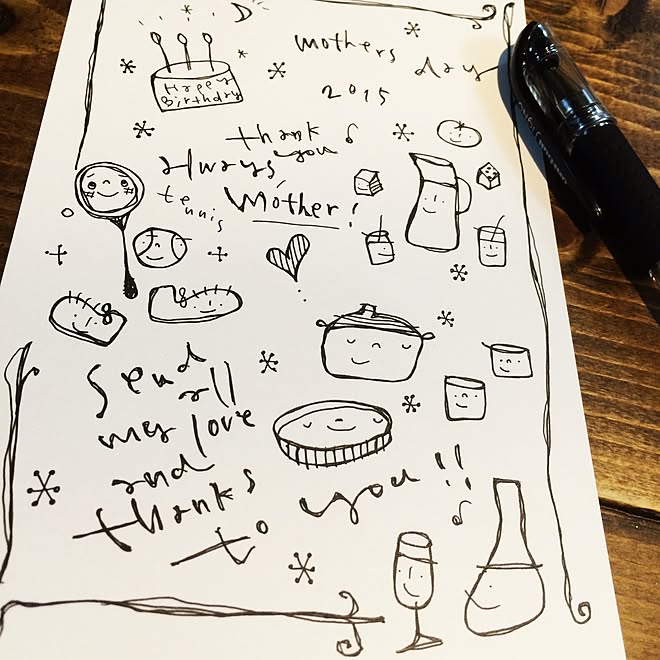 Happy
Birthday
mothers day
2015
thank you
Always,
tennis
Mother!
Send all
my love
and
thanks
to you!!